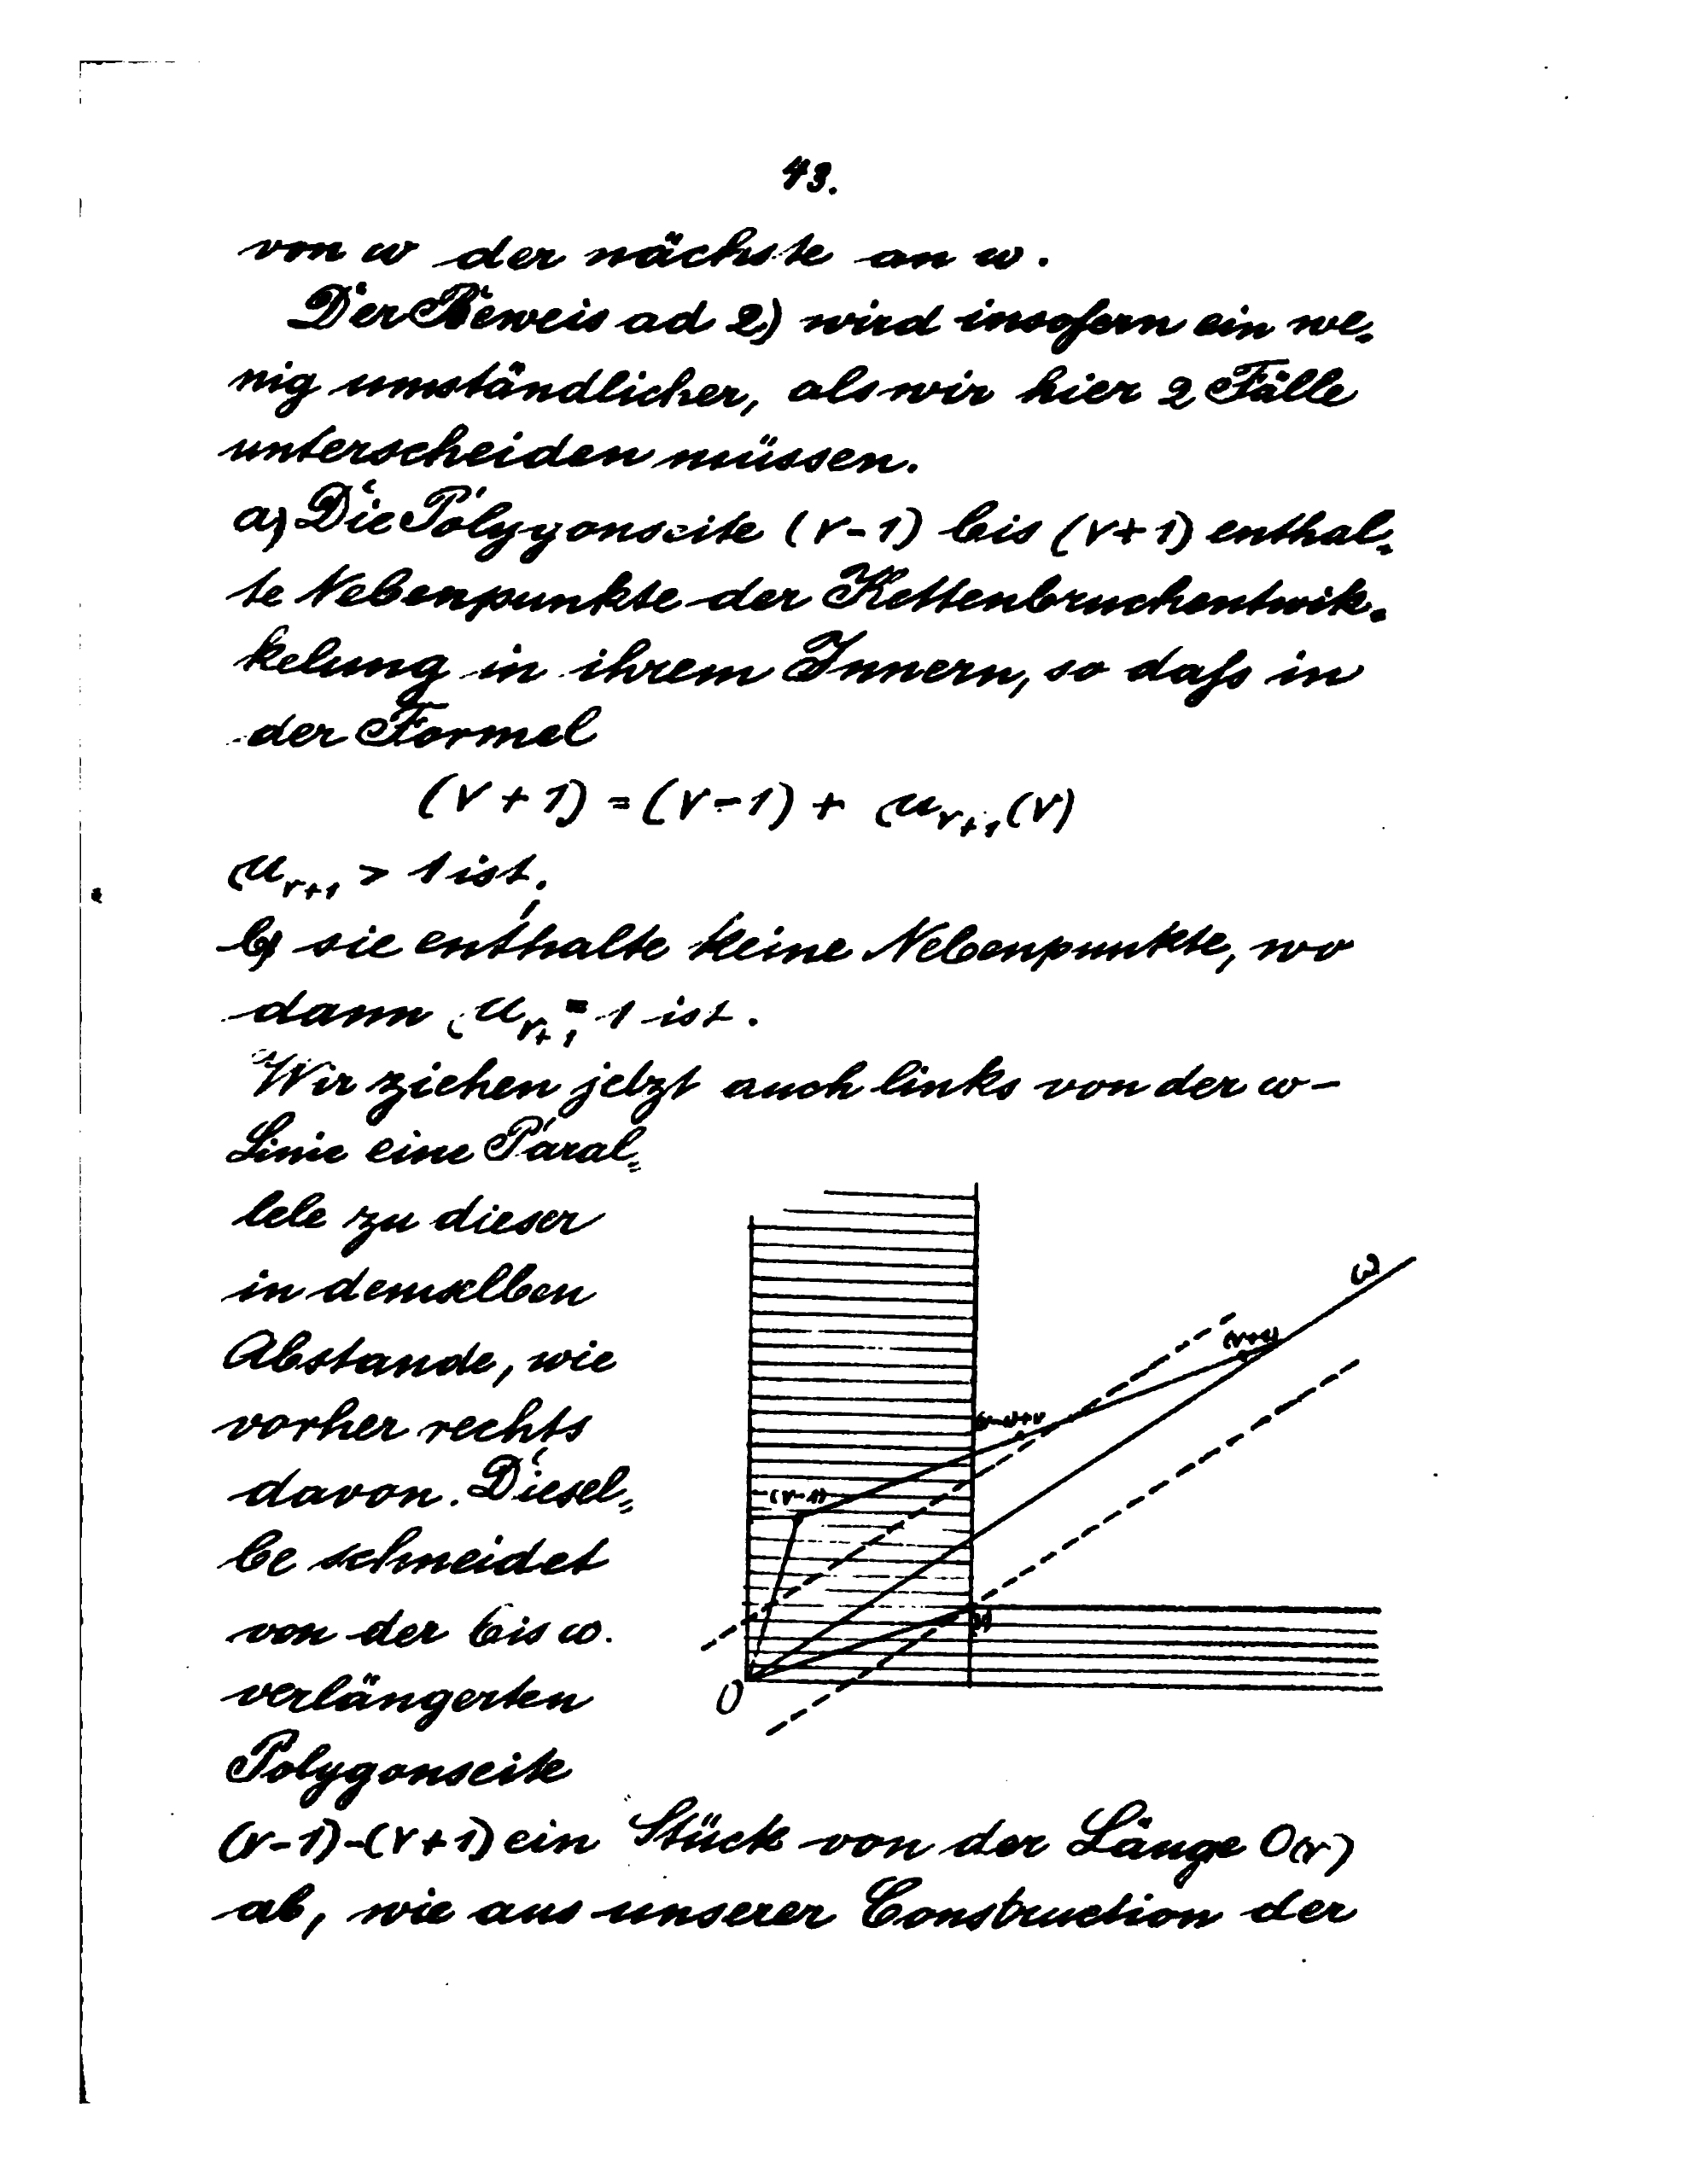 43.
von ω der nächste an ω.
Der Beweis ad 2) wird insofern ein we-
nig umständlicher, als wir hier 2 Fälle
unterscheiden müssen.
a) Die Polygonseite (ν-1) bis (ν+1) enthal-
te Nebenpunkte der Kettenbruchentwik-
kelung in ihrem Innern, so daſs in
der Formel
(ν+1) = (ν-1) + μν+1 (ν)
μν+1 > 1 ist;
b) sie enthalte keine Nebenpunkte, wo
dann μν+1 = 1 ist.
Wir ziehen jetzt auch links von der ω-
Linie eine Paral=
lele zu dieser
in demselben
Abstande, wie
vorher rechts
davon. Diesel=
be schneidet
von der bis ω.
verlängerten
Polygonseite
(ν-1)-(ν+1) ein Stück von der Länge O(ν)
ab, wie aus unserer Construction der
ω
(ν+1)
(ν-1)+ν
(ν-1)
(ν)
O